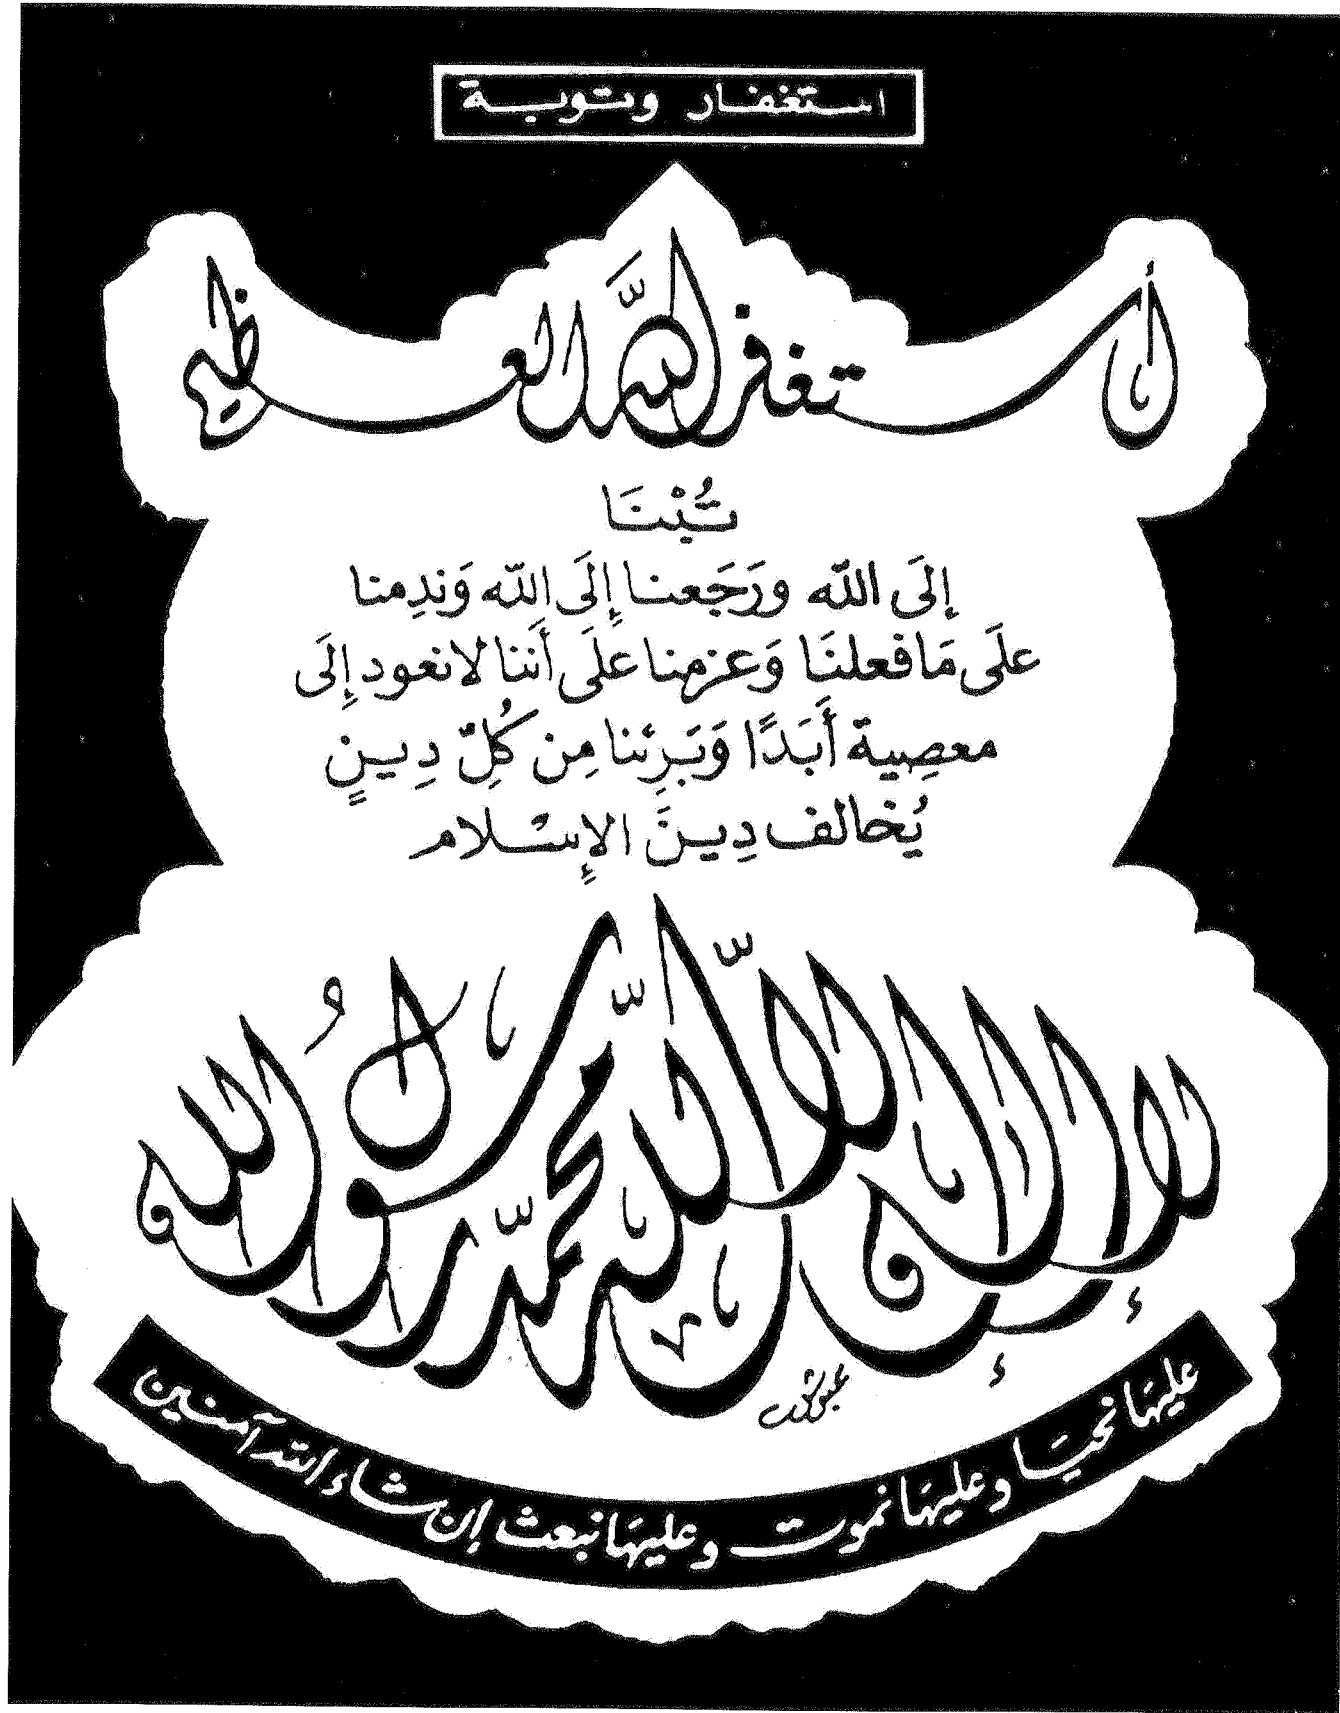 استغفار وتوبة
أستغفر الله العظيم
تُبْنَا
إلَى الله ورَجَعنا إِلَى الله وَندِمنا
علَى مَا فعلنَا وَعزمنا علَى أَننا لا نعود إِلَى
معصِية أَبَدًا وَبَرِئنا مِن كُلِّ دِينٍ
يُخالف دِينَ الإِسْلام
لا إله إلا الله محمد رسول الله
عليها نحيا وعليها نموت وعليها نبعث إن شاء الله آمنين